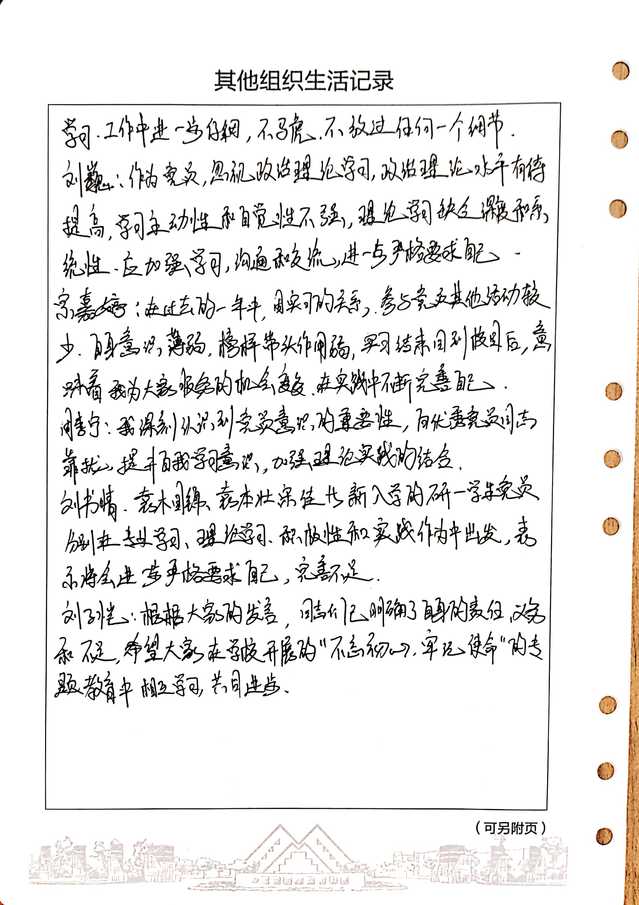 其他组织生活记录
学习、工作中进一步仔细，不马虎、不放过任何一个细节．
刘巍：作为党员，忽视政治理论学习，政治理论水平有待
提高，学习主动性和自觉性不强，理论学习缺乏深度和系
统性．应加强学习，沟通和交流，进一步严格要求自己．
宗嘉婷：在过去的一年中，因实习的关系，参与党支其他活动较
少．自身意识薄弱，榜样带头作用弱，实习结束回到校园后，意
味着我为大家服务的机会变多．在实践中不断完善自己．
宁：我深刻认识到党员意识的重要性，向优秀党员同志
靠拢，提升自我学习意识，加强理论实践的结合．
刘书情、袁木、袁本壮、宋佳等新入学的研一学生党员
分别在专业学习、理论学习、积极性和实践作为中出发，表
示将会进一步严格要求自己，完善不足．
刘：根据大家的发言，同志们已明确了自身的责任、义务
和不足，希望大家在学校开展的"不忘初心、牢记使命"的专
题教育中相互学习，共同进步．
（可另附页）